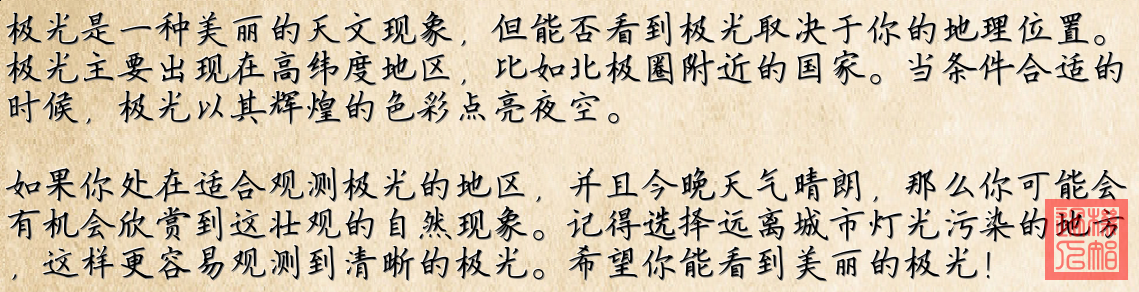 极光是一种美丽的天文现象，但能否看到极光取决于你的地理位置。
极光主要出现在高纬度地区，比如北极圈附近的国家。当条件合适的
时候，极光以其辉煌的色彩点亮夜空。
如果你处在适合观测极光的地区，并且今晚天气晴朗，那么你可能会
有机会欣赏到这壮观的自然现象。记得选择远离城市灯光污染的地方
，这样更容易观测到清晰的极光。希望你能看到美丽的极光！